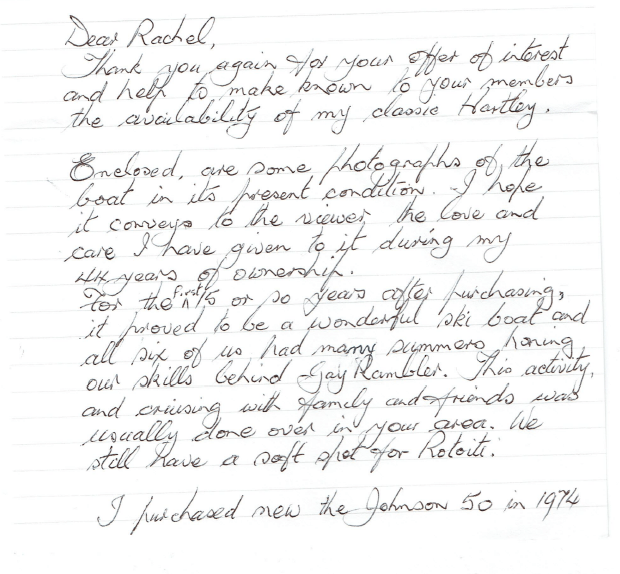 Dear Rachel,
Thank you again for your offer of interest
and help to make known to your members
the availability of my classic Hartley.
Enclosed, are some photographs of the
boat in its present condition. I hope
it conveys to the viewer the love and
care I have given to it during my
44 years of ownership.
For the first 15 or so years after purchasing,
it proved to be a wonderful ski boat and
all six of us had many summers honing
our skills behind Gay Rambler. This activity,
and cruising with family and friends was
usually done over in your area. We
still have a soft spot for Rotoiti.
I purchased new the Johnson 50 in 1974